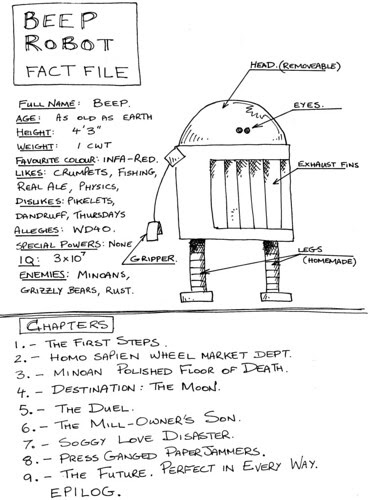 BEEP
ROBOT
FACT FILE
FULL NAME: BEEP.
AGE: AS OLD AS EARTH
HEIGHT: 4'3"
WEIGHT: 1 CWT
FAVOURITE COLOUR: INFA-RED.
LIKES: CRUMPETS, FISHING,
REAL ALE, PHYSICS,
DISLIKES: PIKELETS,
DANDRUFF, THURSDAYS
ALLEGIES: WD40.
SPECIAL POWERS: NONE
IQ: 3×10⁷
ENEMIES: MINOANS,
GRIZZLY BEARS, RUST.
HEAD. (REMOVEABLE)
EYES.
EXHAUST FINS
GRIPPER.
LEGS
(HOMEMADE)
CHAPTERS
1. - THE FIRST STEPS.
2. - HOMO SAPIEN WHEEL MARKET DEPT.
3. - MINOAN POLISHED FLOOR OF DEATH.
4. - DESTINATION: THE MOON.
5. - THE DUEL.
6. - THE MILL-OWNER'S SON.
7. - SOGGY LOVE DISASTER.
8. - PRESS GANGED PAPER JAMMERS.
9. - THE FUTURE. PERFECT IN EVERY WAY.
EPILOG.